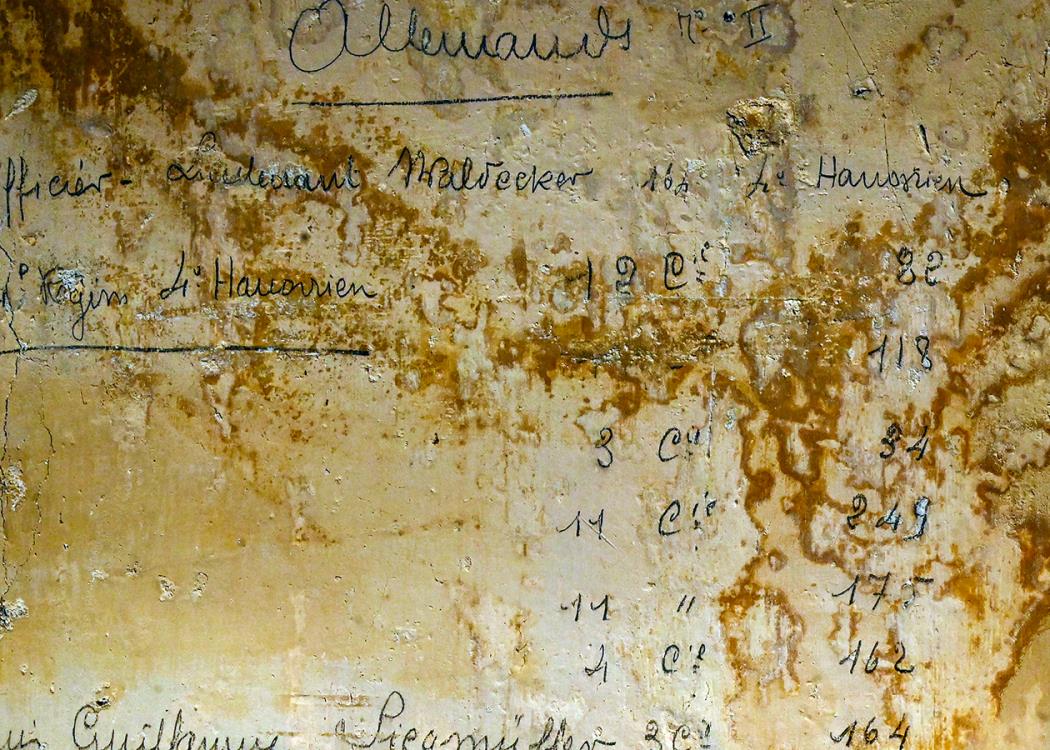 Allemands N° II
officier - Lieutenant Waldecker 164 4e Hanovrien
Régim 4e Hanovrien 12 Cie 82
118
3 Cie 34
11 Cie 249
11 " 175
4 Cie 162
Guillaume Siegmüller 2 Cie 164